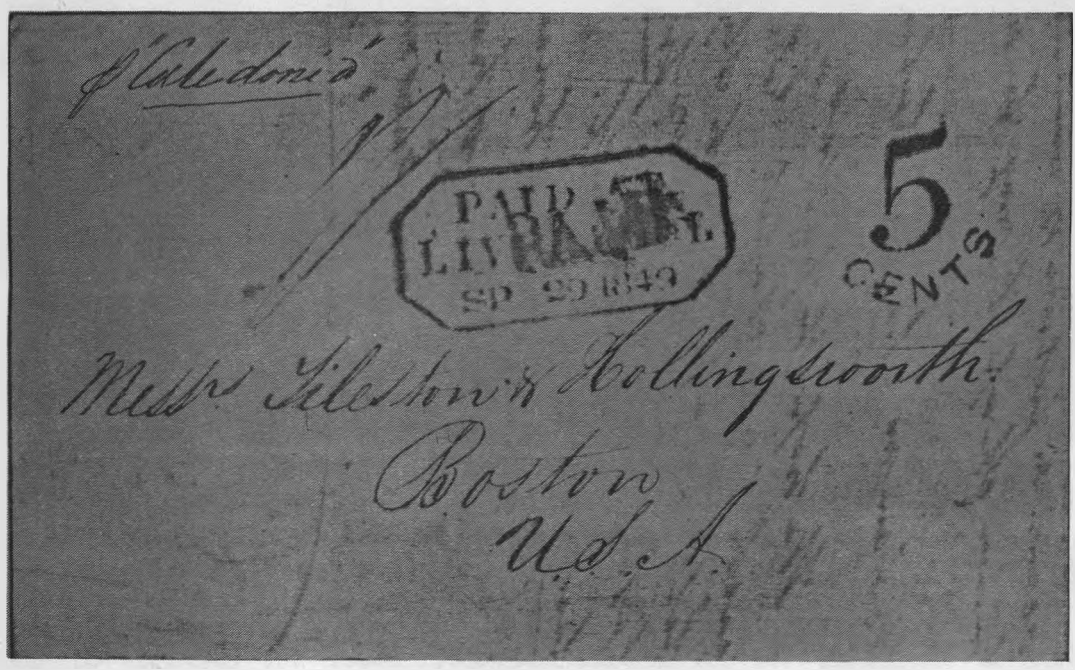 p "Caledonia"
1/
PAID AT
LIVERPOOL
SP 29 1849
5
CENTS
Messrs Tileston & Hollingsworth.
Boston
U.S.A.